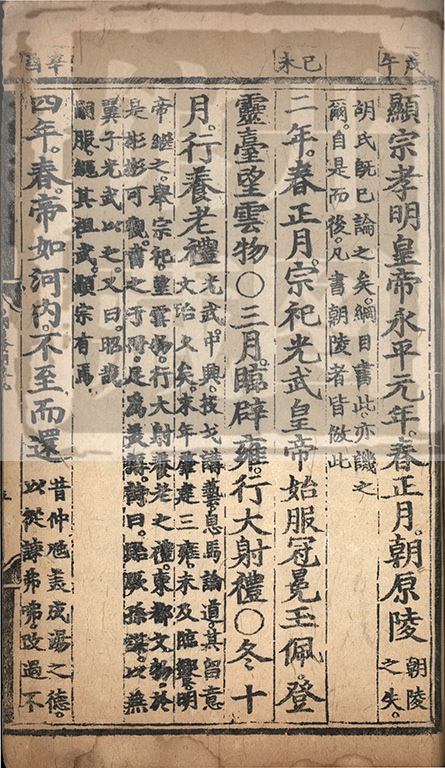 戊午
顯宗孝明皇帝永平元年。春正月。朝原陵
朝陵
之失。
胡氏旣已論之矣。綱目書此。亦譏之
爾。自是而後。凡書朝陵者皆倣此
己未
二年。春正月。宗祀光武皇帝始服冠冕玉佩。登
靈臺望雲物○三月。臨辟雍。行大射禮○冬十
月。行養老禮
光武中興。投戈講藝。息馬論道。其留意
文治久矣。末年肇建三雍。未及臨饗。明
帝繼之。舉宗祀。望雲物。行大射養老之禮。東都文物於
是彬彬可觀。書之于冊。足爲美談。詩曰。厥孫謀。以燕
翼子。光武以之。又曰。昭哉
嗣服。繩其祖武。顯宗有焉
辛酉
四年。春。帝如河內。不至而還
昔仲虺美成湯之德。
以從諫弗咈。改過不